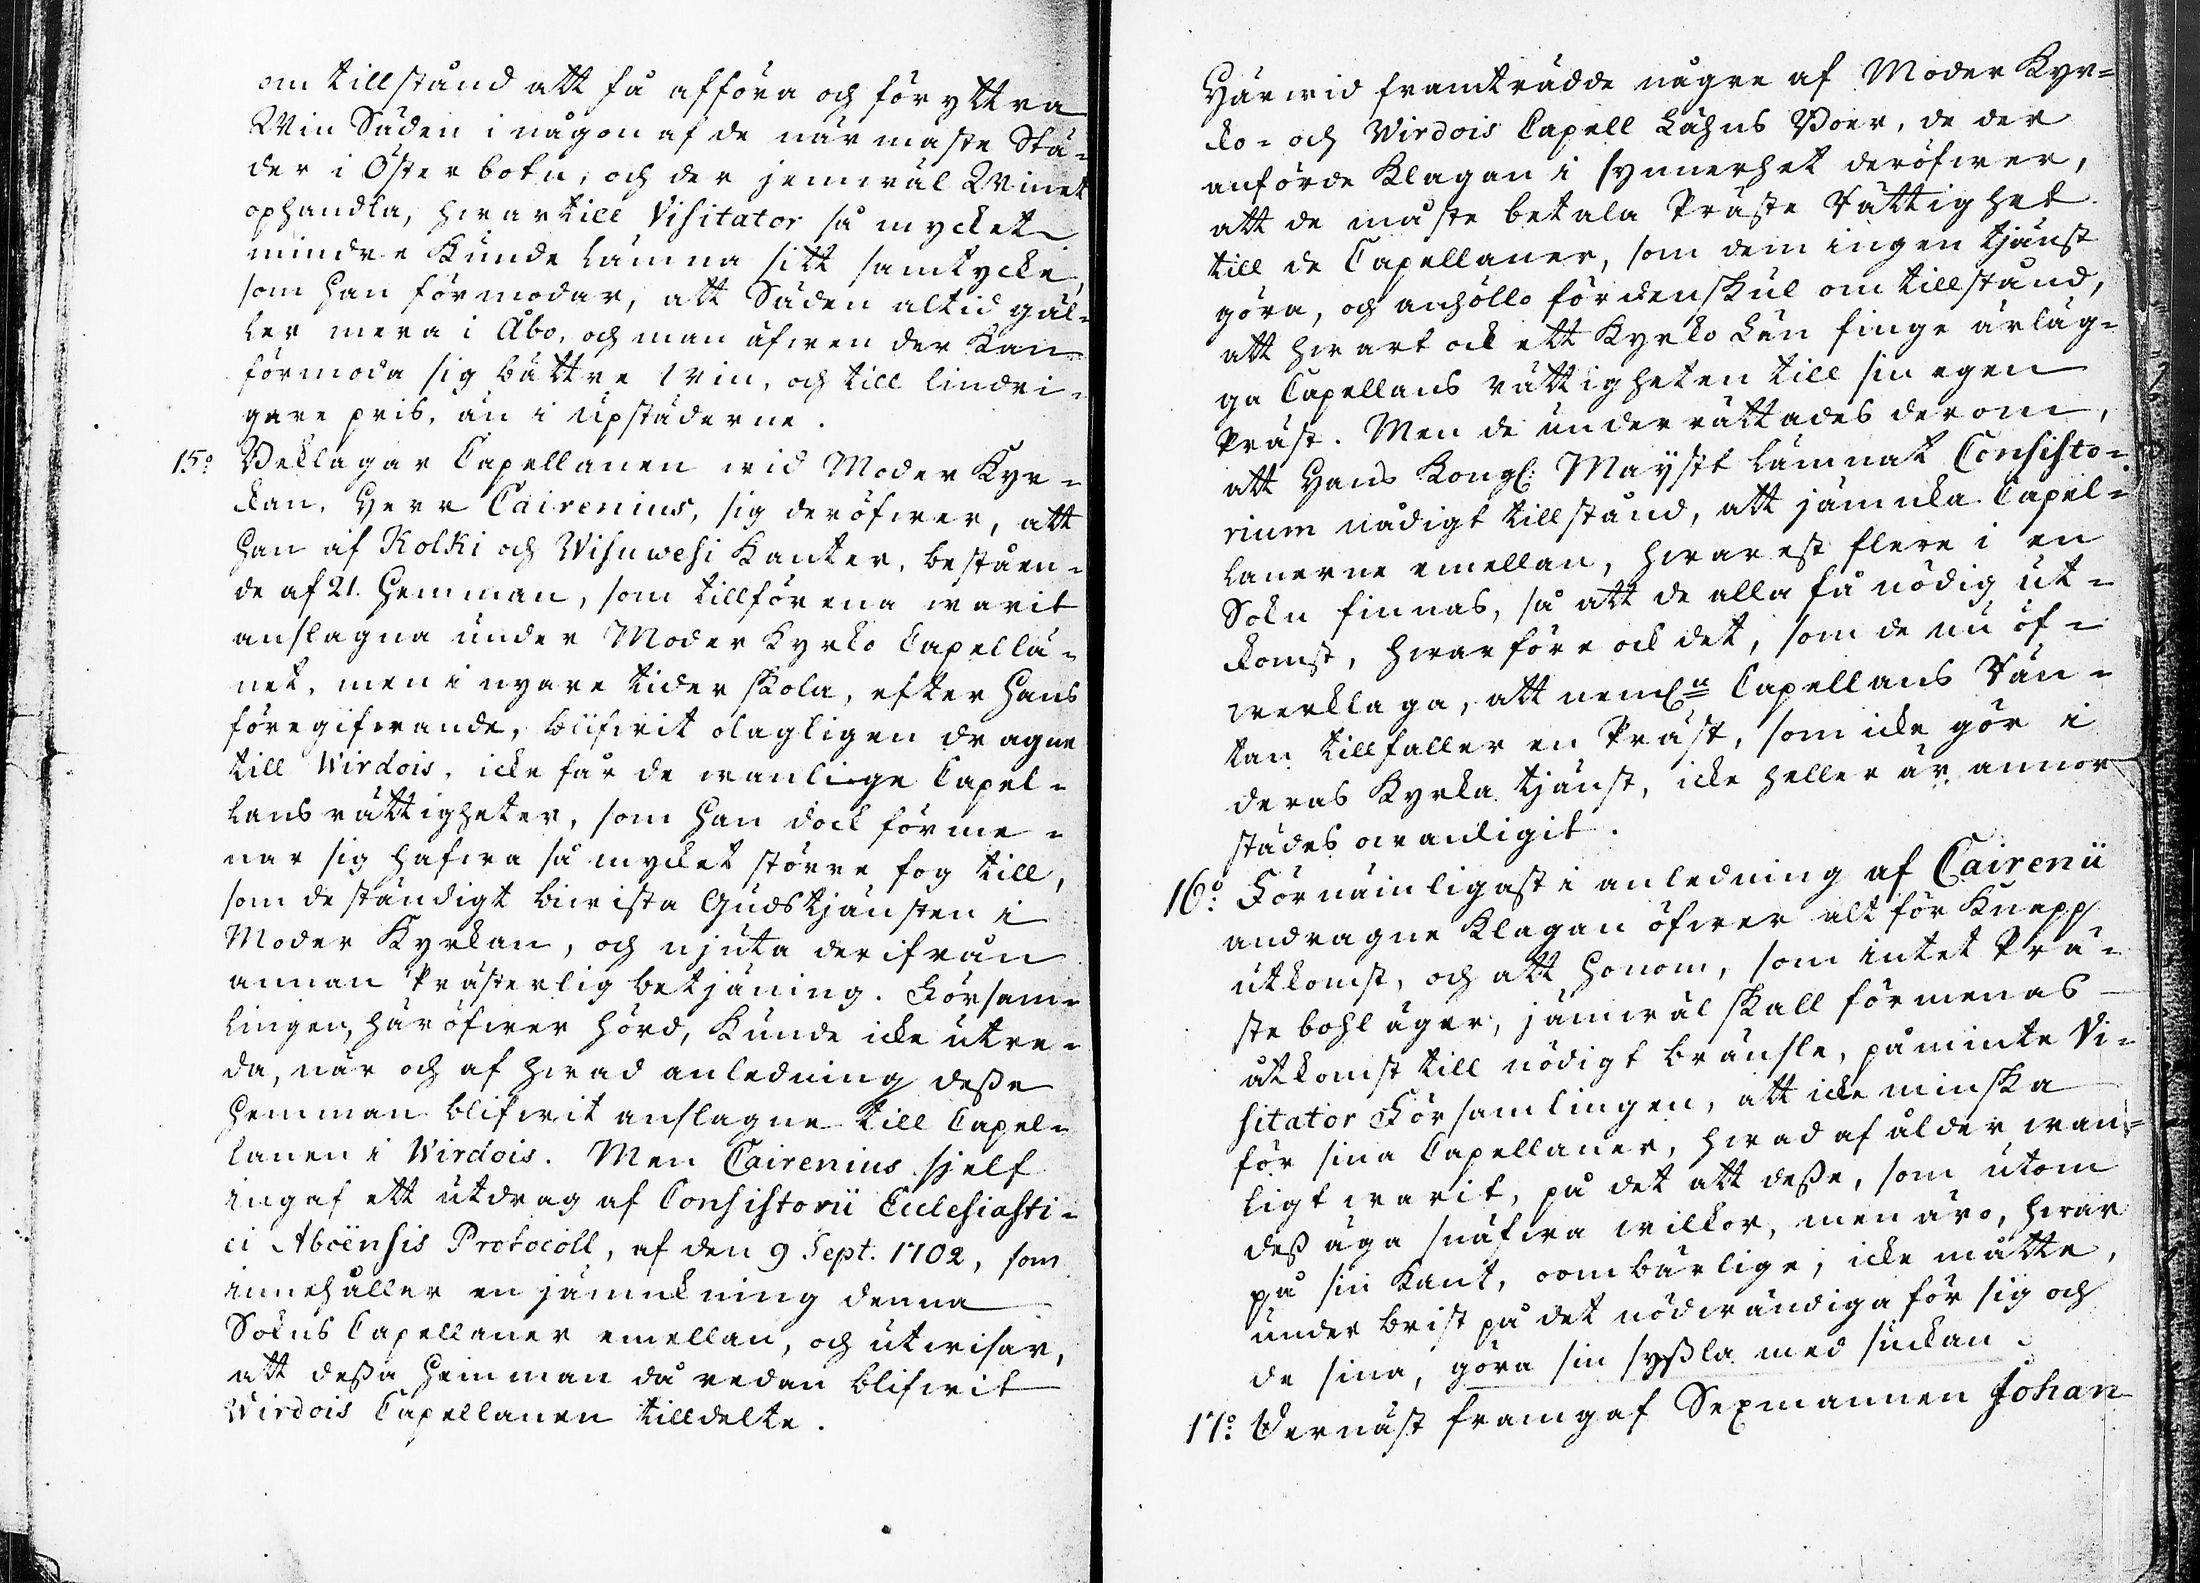 om tillstånd att få afföra och föryttra
Win Säden i någon af de närmaste Stä-
der i Österbotn, och der jemwäl Winet
ophandla, hwartill Visitator så mycket
mindre kunde lämna sitt samtycke,
som han förmodar, att Säden altid gäl-
ler mera i Åbo, och man äfwen der kan
förmoda sig bättre win, och till lindri-
gare pris, än i Upstäderne.
15:o Beklagar Capellanen wid Moder Kyr-
kan, Herr Cairenius, sig deröfwer, att
han af Kolki och Wisuwesi Kanter, beståen-
de af 21. Hemman, som tillförena warit
anslagna under Moder Kyrko Capellä-
net, men i nyare tider skola, efter hans
föregifwande, blifwit olagligen dragne
till Wirdois, icke får de wanlige Capel-
lans rättigheter, som han dock förme-
nar sig hafwa så mycket större fog till,
som de ständigt biwista Gudstjänsten i
Moder Kyrkan, och njuta derifrån
annan Prästerlig betjäning. Försam-
lingen, häröfwer hörd, kunde icke utre-
da, när och af hwad anledning deße
Hemman blifwit anslagne till Capel-
lanen i Wirdois. Men Cairenius sjelf
ingaf ett utdrag af Consistorii Ecclesiasti-
ci Aboënsis Protocoll, af den 9 Sept. 1702, som
innehåller en jämnkning denna
Sokns Capellaner emellan, och utwisar,
att deßa Hemman då redan blifwit
Wirdois Capellanen tilldelte.
Härwid framträdde någre af Moder Kyr-
ko- och Wirdois Capell Lähns Boer, de der
anförde Klagan i synnerhet deröfwer,
att de måste betala Präste Rättighet
till de Capellaner, som dem ingen tjänst
göra, och anhöllo fördenskul om tillstånd,
att hwart ock ett Kyrko Län finge ärläg-
ga Capellans rättigheten till sin egen
Präst. Men de underrättades derom,
att Hans Kongl: Mayst:t lämnat Consisto-
rium nådigt tillstånd, att jämnka Capel-
lanerne emellan, hwarest flere i en
Sokn finnas, så att de alla få nödig ut-
komst, hwarföre ock det, som de nu öf-
werklaga, att neml:n Capellans Rän-
tan tillfaller en Präst, som icke gör i
deras Kyrka tjänst, icke heller är annor
städes owanligit.
16:o Förnämligast i anledning af Cairenii
andragne Klagan öfwer alt för Knapp
utkomst, och att honom, som intet Prä-
stebohl äger, jämwäl skall förmenas
åtkomst till nödigt bränsle, påminte Vi-
sitator Församlingen, att icke minska
för sina Capellaner, hwad af ålder wan-
ligt warit, på det att deße, som utom
deß äga snäfwa willkor, men äro, hwar
på sin kant, oombärlige, icke måtte,
under brist på det nödwändiga för sig och
de sina, göra sin syßla med suckan.
17:o Dernäst framgaf Sexmannen Johan